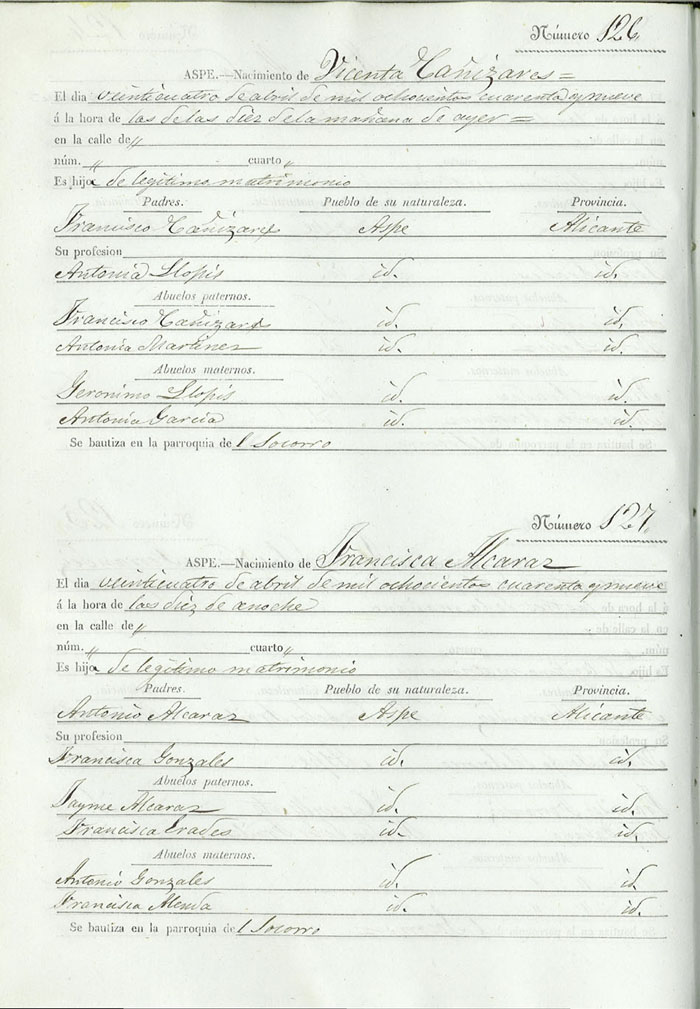 Número 126.
ASPE.—Nacimiento de Vicenta Cañizares =
El dia veinticuatro de abril de mil ochocientos cuarenta y nueve
á la hora de las de las diez de la mañana de ayer =
en la calle de "
núm. " cuarto "
Es hija de legitimo matrimonio
Padres. Pueblo de su naturaleza. Provincia.
Francisco Cañizares Aspe Alicante
Su profesion
Antonia Llopis id. id.
Abuelos paternos.
Francisco Cañizares id. id.
Antonia Martinez id. id.
Abuelos maternos.
Geronimo Llopis id. id.
Antonia Garcia id. id.
Se bautiza en la parroquia del Socorro
Número 127.
ASPE.—Nacimiento de Francisca Alcaraz
El dia veinticuatro de abril de mil ochocientos cuarenta y nueve
á la hora de las diez de anoche
en la calle de "
núm. " cuarto "
Es hija de legitimo matrimonio
Padres. Pueblo de su naturaleza. Provincia.
Antonio Alcaraz Aspe Alicante
Su profesion
Francisca Gonzales id. id.
Abuelos paternos.
Jayme Alcaraz id. id.
Francisca Erades id. id.
Abuelos maternos.
Antonio Gonzales id. id
Francisca Alenda id. id.
Se bautiza en la parroquia del Socorro